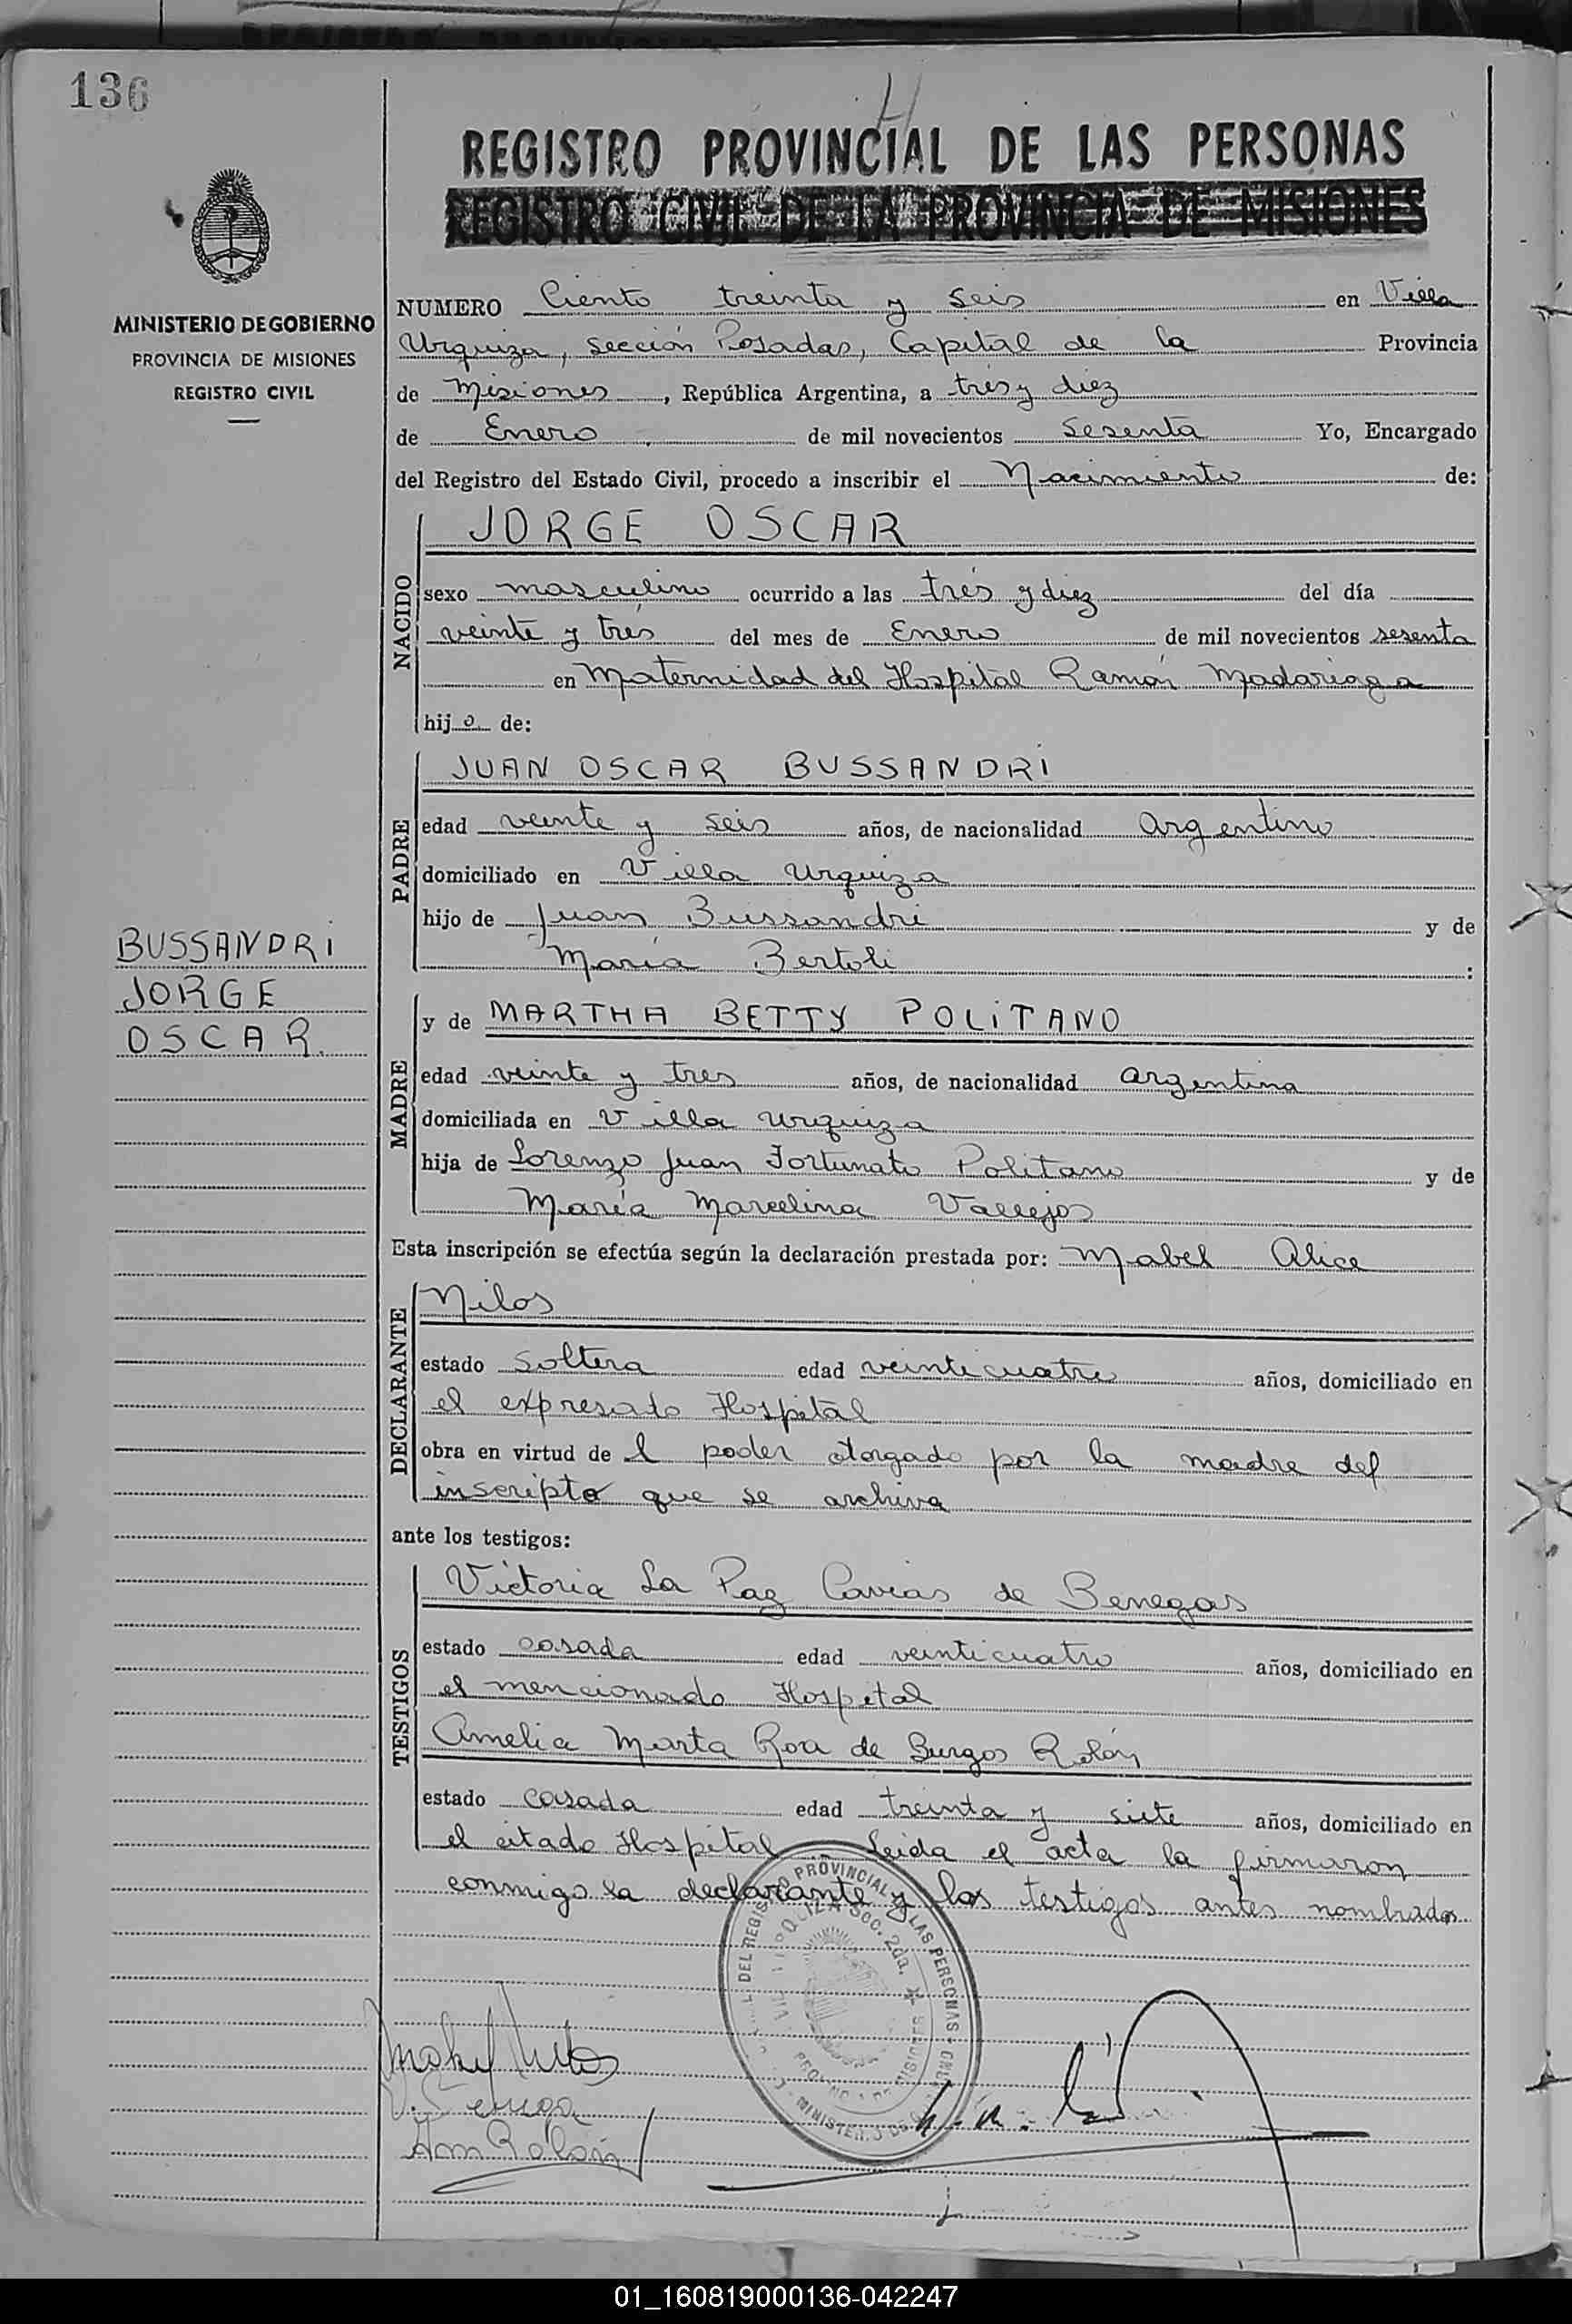 136
REGISTRO PROVINCIAL DE LAS PERSONAS
REGISTRO CIVIL DE LA PROVINCIA DE MISIONES
MINISTERIO DE GOBIERNO
PROVINCIA DE MISIONES
REGISTRO CIVIL
NUMERO Ciento treinta y seis en Villa
Urquiza, sección Posadas, Capital de la Provincia
de Misiones, República Argentina, a tres y diez
de Enero de mil novecientos sesenta Yo, Encargado
del Registro del Estado Civil, procedo a inscribir el Nacimiento de:
NACIDO
JORGE OSCAR
sexo masculino ocurrido a las tres y diez del día
veinte y tres del mes de Enero de mil novecientos sesenta
en Maternidad del Hospital Ramón Madariaga
hijo de:
PADRE
JUAN OSCAR BUSSANDRI
edad veinte y seis años, de nacionalidad Argentino
domiciliado en Villa Urquiza
hijo de Juan Bussandri y de
María Bertoli :
BUSSANDRI
JORGE
OSCAR.
MADRE
y de MARTHA BETTY POLITANO
edad veinte y tres años, de nacionalidad argentina
domiciliada en Villa Urquiza
hija de Lorenzo Juan Fortunato Politano y de
María Marcelina Vallejos
Esta inscripción se efectúa según la declaración prestada por: Mabel Alice
DECLARANTE
Nilos
estado soltera edad veinticuatro años, domiciliado en
el expresado Hospital
obra en virtud de l poder otorgado por la madre del
inscripto que se archiva
ante los testigos:
TESTIGOS
Victoria La Paz Cavias de Benegas
estado casada edad veinticuatro años, domiciliado en
el mencionado Hospital
Amelia Marta Roa de Burgos Rolón
estado casada edad treinta y siete años, domiciliado en
el citado Hospital Leida el acta la firmaron
conmigo la declarante y los testigos antes nombrados
DEL REGISTRO PROVINCIAL DE LAS PERSONAS
VILLA URQUIZA Secc. 2da.
PROVINCIA DE MISIONES
MINISTERIO DE
01_160819000136-042247